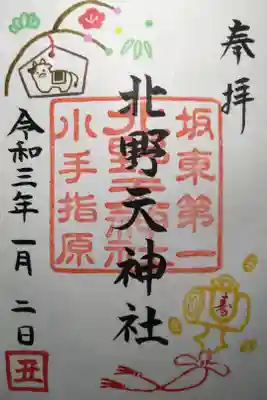 奉拝
坂東第一
北野天神社
小手指原
令和三年一月二日
丑
寿